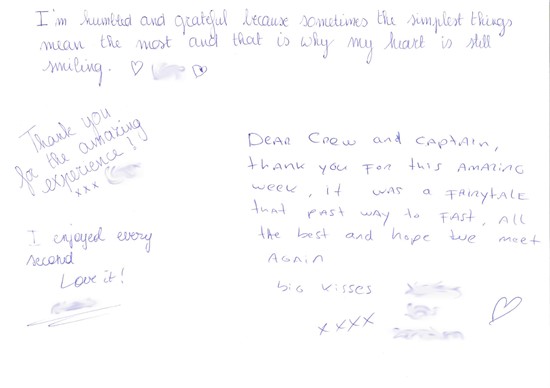 I'm humbled and grateful because sometimes the simplest things
mean the most and that is why my heart is still
smiling. ♡
Thank you
for the amazing
experience!
xxx
I enjoyed every
second
Love it!
Dear Crew and Captain,
thank you for this amazing
week, it was a fairytale
that past way to fast. All
the best and hope we meet
again
big kisses
xxxx